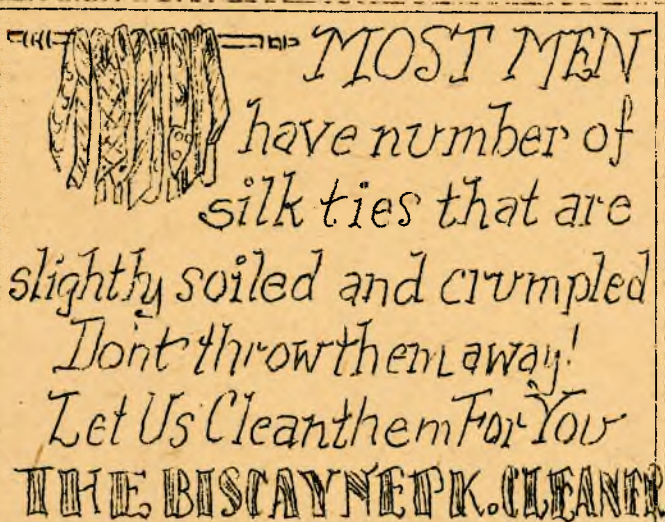 MOST MEN
have number of
silk ties that are
slightly soiled and crumpled
Don't throw them away!
Let Us Clean them For You
THE BISCAYNE PK. CLEANER